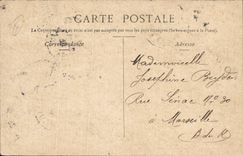 CARTE POSTALE
La Correspondance au recto n'est pas acceptée par tous les pays étrangers (Se Renseigner à la Poste).
Correspondance
Adresse
Mademoiselle
Joséphine
Rue Sénac Nº 30
à Marseille
B. du R.